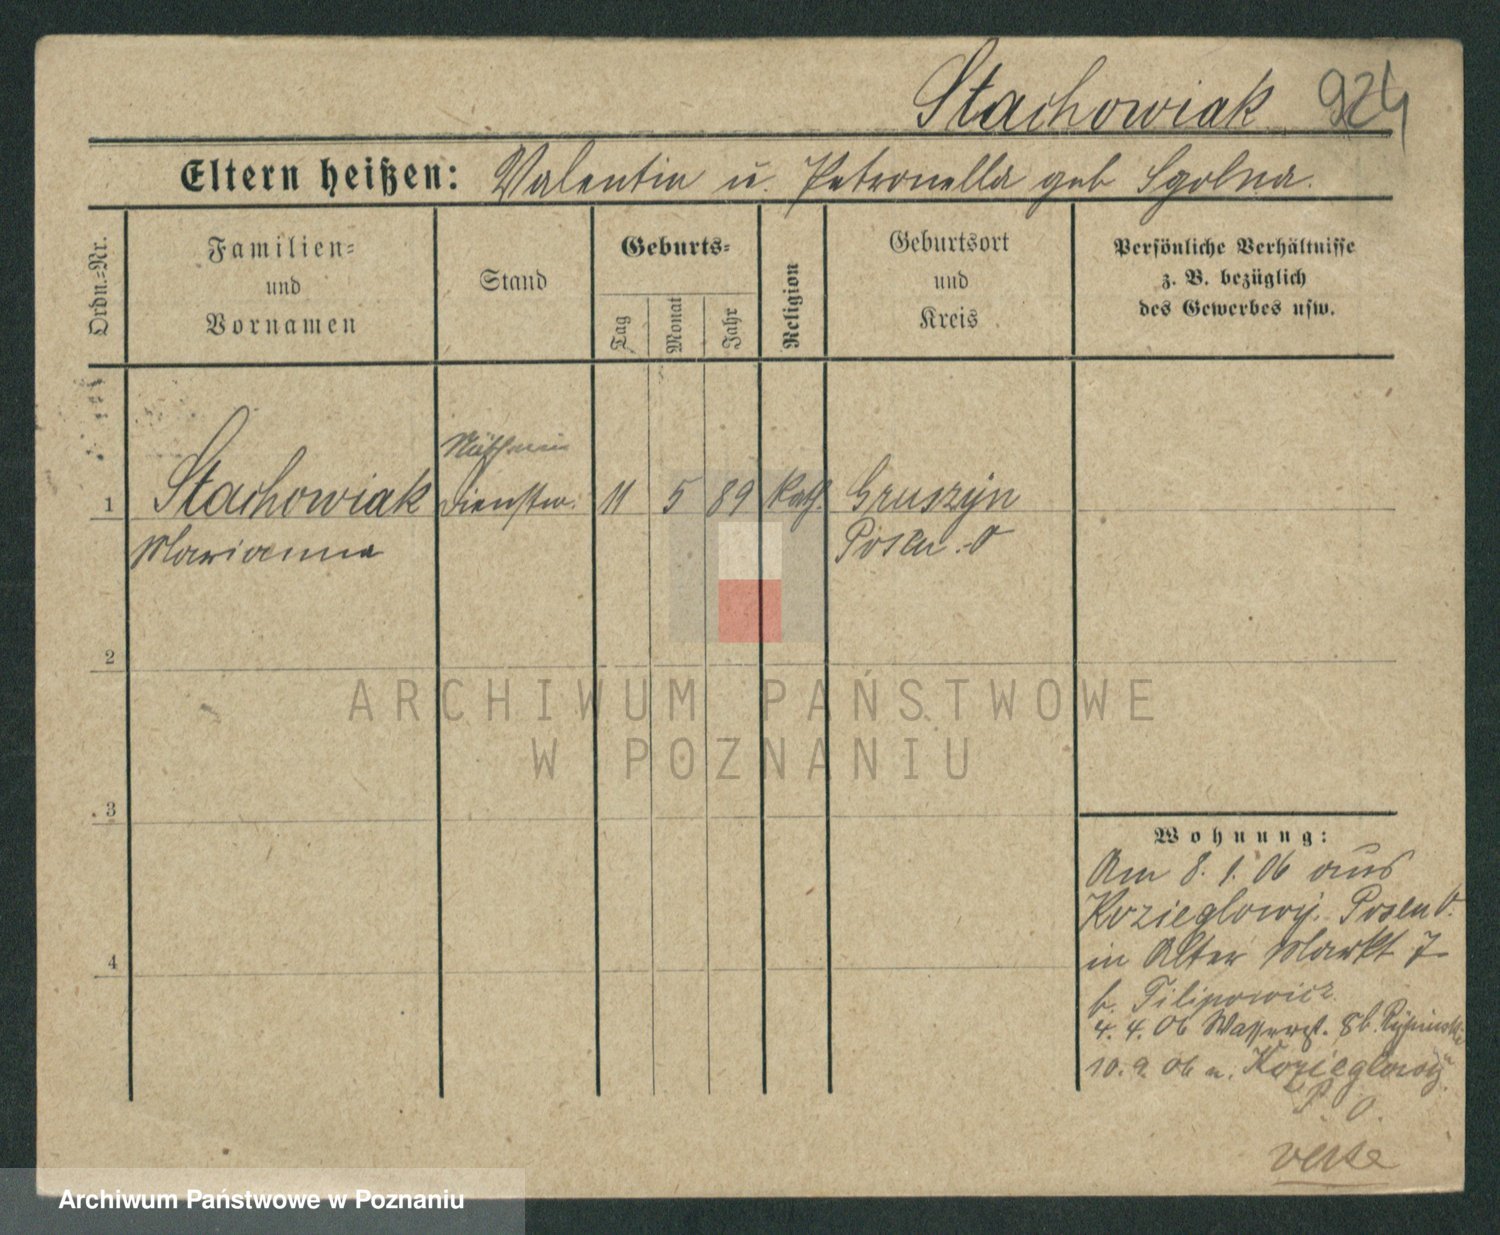 Stachowiak 924
Eltern heißen: Valentin u. Petronella geb Sgolna.
Ordn.=Nr.
Familien=
und
Vornamen
Stand
Geburts=
Tag
Monat
Jahr
Religion
Geburtsort
und
Kreis
Persönliche Verhältnisse
z. B. bezüglich
des Gewerbes usw.
1 Stachowiak Dienstm. 11 5 89 Kath. Gruszýn
Marianna Posen-O
2
3
4
Wohnung:
Am 8. 1. 06 aus
Kozieglowy. Posen O.
in Alter Markt 7
b. Filipowicz
4. 4. 06 Wasserst. 8 b.
10. 9. 06 n. Kozieglowy
P. O.
ARCHIWUM PAŃSTWOWE
W POZNANIU
Archiwum Państwowe w Poznaniu